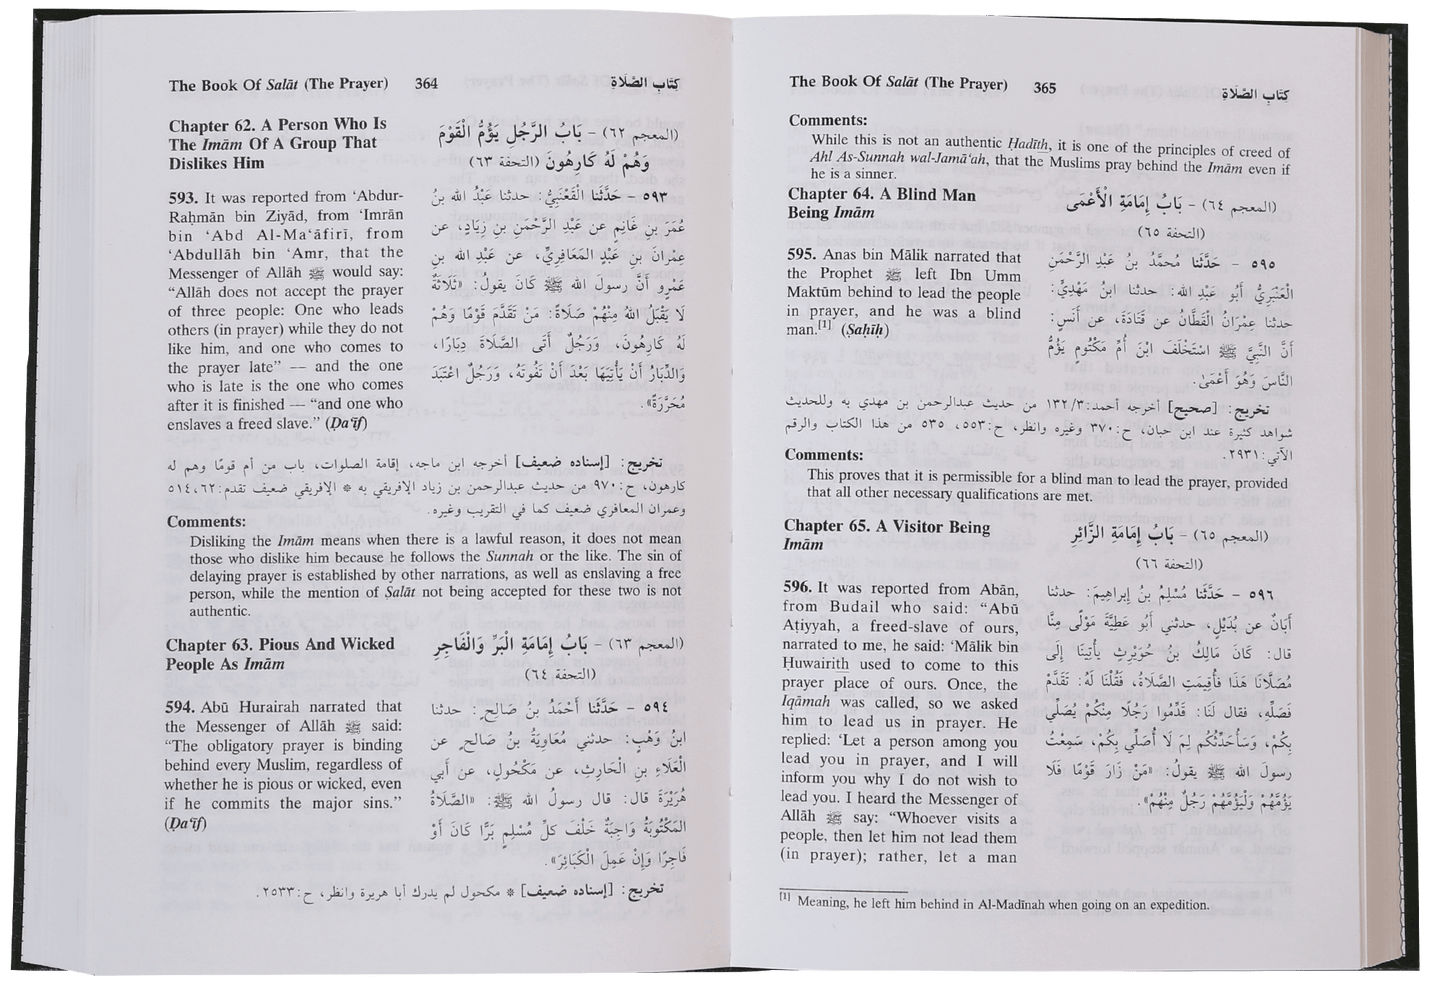 The Book Of Salāt (The Prayer) 364 كتاب الصَّلَاةِ
Chapter 62. A Person Who Is
The Imām Of A Group That
Dislikes Him
(المعجم ٦٢) - بَابُ الرَّجُلِ يَؤُمُّ الْقَوْمَ
وَهُمْ لَهُ كَارِهُونَ (التحفة ٦٣)
593. It was reported from ‘Abdur-
Raḥmān bin Ziyād, from ‘Imrān
bin ‘Abd Al-Ma‘āfirī, from
‘Abdullāh bin ‘Amr, that the
Messenger of Allāh ﷺ would say:
“Allāh does not accept the prayer
of three people: One who leads
others (in prayer) while they do not
like him, and one who comes to
the prayer late” — and the one
who is late is the one who comes
after it is finished — “and one who
enslaves a freed slave.” (Ḍa‘īf)
٥٩٣ - حَدَّثَنا الْقَعْنَبِيُّ: حدثنا عَبْدُ الله بنُ
عُمَرَ بنِ غَانِمٍ عن عَبْدِ الرَّحْمٰنِ بنِ زِيَادٍ، عن
عِمْرَانَ بنِ عَبْدٍ المَعَافِرِيِّ، عن عَبْدِ الله بنِ
عَمْرٍو أنَّ رسولَ الله ﷺ كَانَ يقولُ: «ثَلَاثَةٌ
لَا يَقْبَلُ اللهُ مِنْهُمْ صَلَاةً: مَنْ تَقَدَّمَ قَوْمًا وَهُمْ
لَهُ كَارِهُونَ، وَرَجُلٌ أَتَى الصَّلَاةَ دِبَارًا،
وَالدِّبَارُ أَنْ يَأْتِيَهَا بَعْدَ أَنْ تَفُوتَهُ، وَرَجُلٌ اعْتَبَدَ
مُحَرَّرَةً».
تخريج: [إسناده ضعيف] أخرجه ابن ماجه، إقامة الصلوات، باب من أم قومًا وهم له
كارهون، ح:٩٧٠ من حديث عبدالرحمن بن زياد الإفريقي به * الإفريقي ضعيف تقدم:٦٢، ٥١٤
وعمران المعافري ضعيف كما في التقريب وغيره.
Comments:
Disliking the Imām means when there is a lawful reason, it does not mean
those who dislike him because he follows the Sunnah or the like. The sin of
delaying prayer is established by other narrations, as well as enslaving a free
person, while the mention of Ṣalāt not being accepted for these two is not
authentic.
Chapter 63. Pious And Wicked
People As Imām
(المعجم ٦٣) - بَابُ إِمَامَةِ الْبَرِّ وَالْفَاجِرِ
(التحفة ٦٤)
594. Abū Hurairah narrated that
the Messenger of Allāh ﷺ said:
“The obligatory prayer is binding
behind every Muslim, regardless of
whether he is pious or wicked, even
if he commits the major sins.”
(Ḍa‘īf)
٥٩٤ - حَدَّثَنا أَحْمَدُ بنُ صَالِحٍ: حدثنا
ابنُ وَهْبٍ: حدثني مُعَاوِيَةُ بنُ صَالحٍ عن
الْعَلَاءِ بنِ الْحَارِثِ، عن مَكْحُولٍ، عن أبي
هُرَيْرَةَ قال: قال رسولُ الله ﷺ: «الصَّلَاةُ
المَكْتُوبَةُ وَاجِبَةٌ خَلْفَ كلِّ مُسْلِمٍ بَرًّا كَانَ أَوْ
فَاجِرًا وَإِنْ عَمِلَ الْكَبَائِرَ».
تخريج: [إسناده ضعيف] * مكحول لم يدرك أبا هريرة وانظر، ح:٢٥٣٣.
The Book Of Salāt (The Prayer) 365 كتاب الصَّلَاةِ
Comments:
While this is not an authentic Ḥadīth, it is one of the principles of creed of
Ahl As-Sunnah wal-Jamā‘ah, that the Muslims pray behind the Imām even if
he is a sinner.
Chapter 64. A Blind Man
Being Imām
(المعجم ٦٤) - بَابُ إِمَامَةِ الْأَعْمَى
(التحفة ٦٥)
595. Anas bin Mālik narrated that
the Prophet ﷺ left Ibn Umm
Maktūm behind to lead the people
in prayer, and he was a blind
man.[1] (Ṣaḥīḥ)
٥٩٥ - حَدَّثَنا مُحَمَّدُ بنُ عَبْدِ الرَّحْمٰنِ
الْعَنْبَرِيُّ أَبُو عَبْدِ الله: حدثنا ابنُ مَهْدِيٍّ:
حدثنا عِمْرَانُ الْقَطَّانُ عن قَتَادَةَ، عن أَنَسٍ:
أَنَّ النَّبِيَّ ﷺ اسْتَخْلَفَ ابْنَ أُمِّ مَكْتُومٍ يَؤُمُّ
النَّاسَ وَهُوَ أَعْمَىٰ.
تخريج: [صحيح] أخرجه أحمد:٣/ ١٣٢ من حديث عبدالرحمن بن مهدي به وللحديث
شواهد كثيرة عند ابن حبان، ح:٣٧٠ وغيره وانظر، ح:٥٥٣، ٥٣٥ من هذا الكتاب والرقم
الآتي:٢٩٣١.
Comments:
This proves that it is permissible for a blind man to lead the prayer, provided
that all other necessary qualifications are met.
Chapter 65. A Visitor Being
Imām
(المعجم ٦٥) - بَابُ إِمَامَةِ الزَّائِرِ
(التحفة ٦٦)
596. It was reported from Abān,
from Budail who said: “Abū
Aṭiyyah, a freed-slave of ours,
narrated to me, he said: ‘Mālik bin
Ḥuwairith used to come to this
prayer place of ours. Once, the
Iqāmah was called, so we asked
him to lead us in prayer. He
replied: ‘Let a person among you
lead you in prayer, and I will
inform you why I do not wish to
lead you. I heard the Messenger of
Allāh ﷺ say: “Whoever visits a
people, then let him not lead them
(in prayer); rather, let a man
٥٩٦ - حَدَّثَنا مُسْلِمُ بنُ إِبراهِيمَ: حدثنا
أَبَانُ عن بُدَيْلٍ، حدثني أَبو عَطِيَّةَ مَوْلًى مِنَّا
قال: كَانَ مَالِكُ بنُ حُوَيْرِثٍ يأْتِينَا إِلَى
مُصَلَّانَا هَذَا فَأُقِيمَتِ الصَّلَاةُ، فَقُلْنَا لَهُ: تَقَدَّمْ
فَصَلِّهِ، فقال لَنَا: قَدِّمُوا رَجُلًا مِنْكُم يُصَلِّي
بِكُمْ، وَسَأُحَدِّثُكُم لِمَ لَا أُصَلِّي بِكُمْ، سَمِعْتُ
رسولَ الله ﷺ يقولُ: «مَنْ زَارَ قَوْمًا فَلَا
يَؤُمَّهُمْ وَلْيَؤُمَّهُمْ رَجُلٌ مِنْهُمْ».
[1] Meaning, he left him behind in Al-Madīnah when going on an expedition.